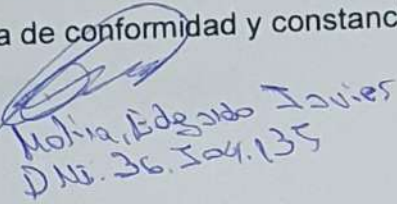 a de conformidad y constanc
Molina, Edgardo Javier
DNi. 36.504.135